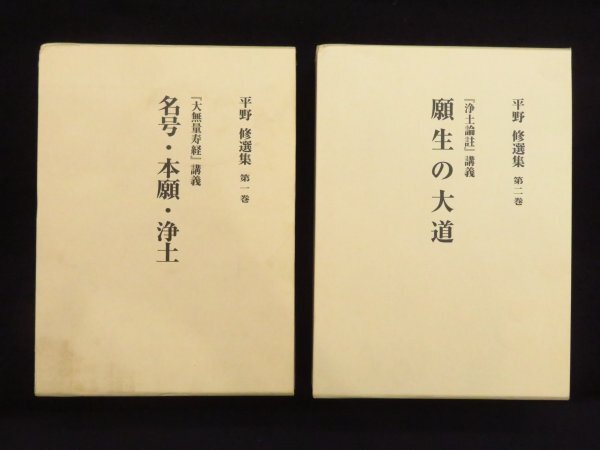 平野 修選集 第一巻
『大無量寿経』講義
名号・本願・浄土
平野 修選集 第二巻
『浄土論註』講義
願生の大道